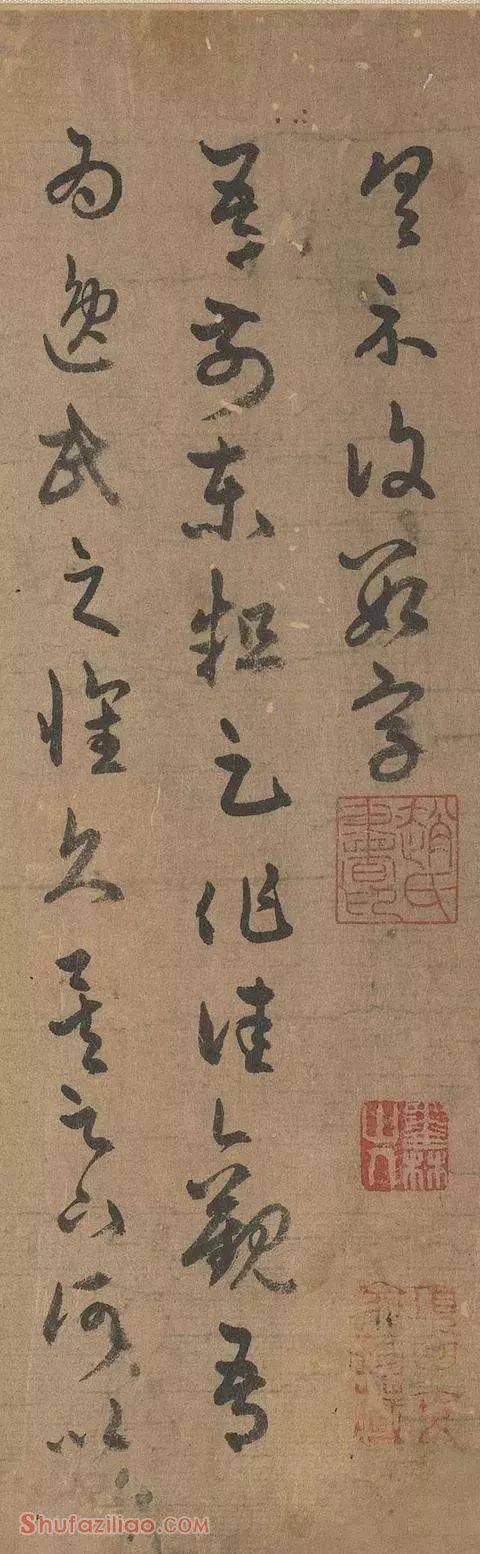 具示復數字
吾前東粗足作佳觀吾
為逸民之懷久矣足下何以
趙氏書印
Shufaziliao.COM